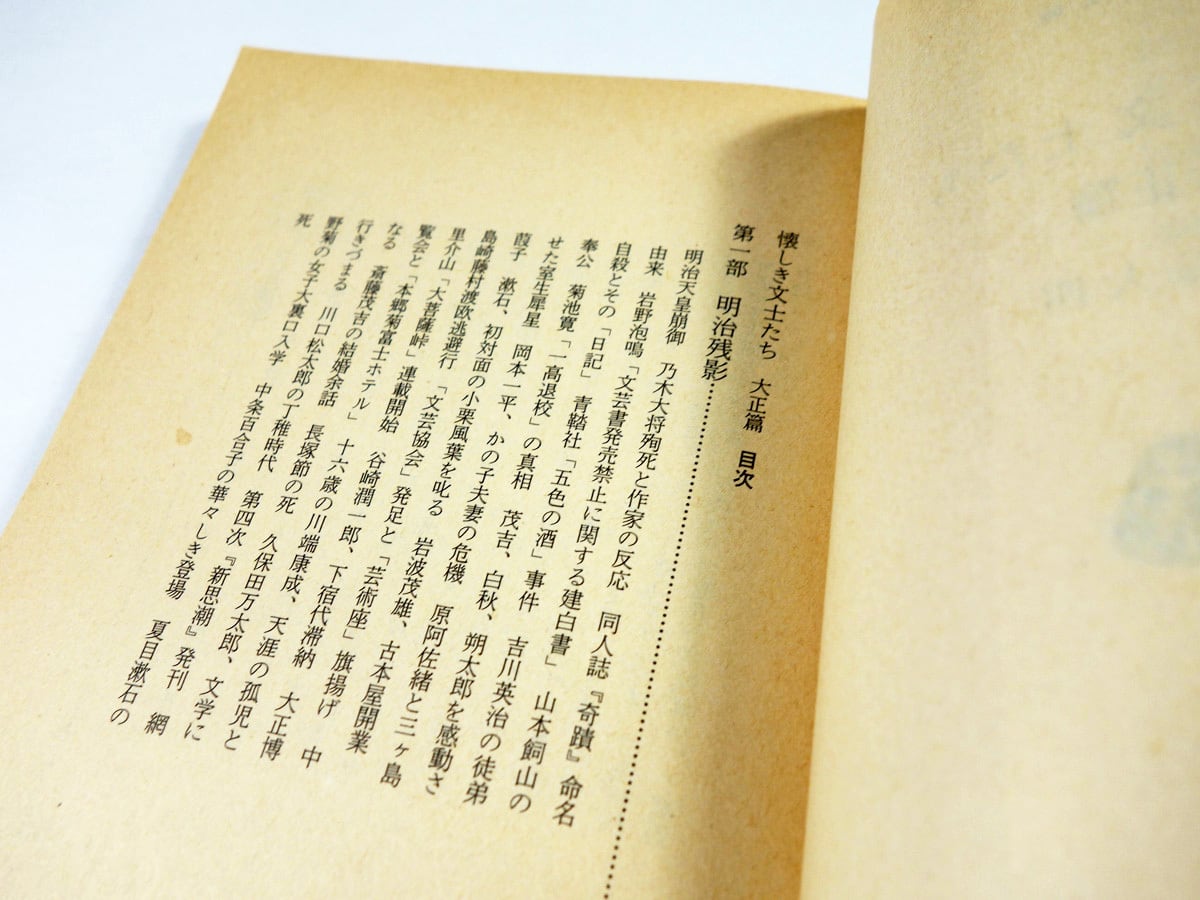 懐しき文士たち　大正篇　目次
第一部　明治残影
明治天皇崩御　乃木大将殉死と作家の反応　同人誌『奇蹟』命名
由来　岩野泡鳴「文芸書発売禁止に関する建白書」　山本飼山の
自殺とその「日記」　青鞜社「五色の酒」事件　吉川英治の徒弟
奉公　菊池寛「一高退校」の真相　茂吉、白秋、朔太郎を感動さ
せた室生犀星　岡本一平、かの子夫妻の危機　原阿佐緒と三ヶ島
葭子　漱石、初対面の小栗風葉を叱る　岩波茂雄、古本屋開業
島崎藤村渡欧逃避行　「文芸協会」発足と「芸術座」旗揚げ　中
里介山「大菩薩峠」連載開始　谷崎潤一郎、下宿代滞納　大正博
覧会と「本郷菊富士ホテル」　十六歳の川端康成、天涯の孤児と
なる　斎藤茂吉の結婚余話　長塚節の死　久保田万太郎、文学に
行きづまる　川口松太郎の丁稚時代　第四次『新思潮』発刊　網
野菊の女子大裏口入学　中条百合子の華々しき登場　夏目漱石の
死